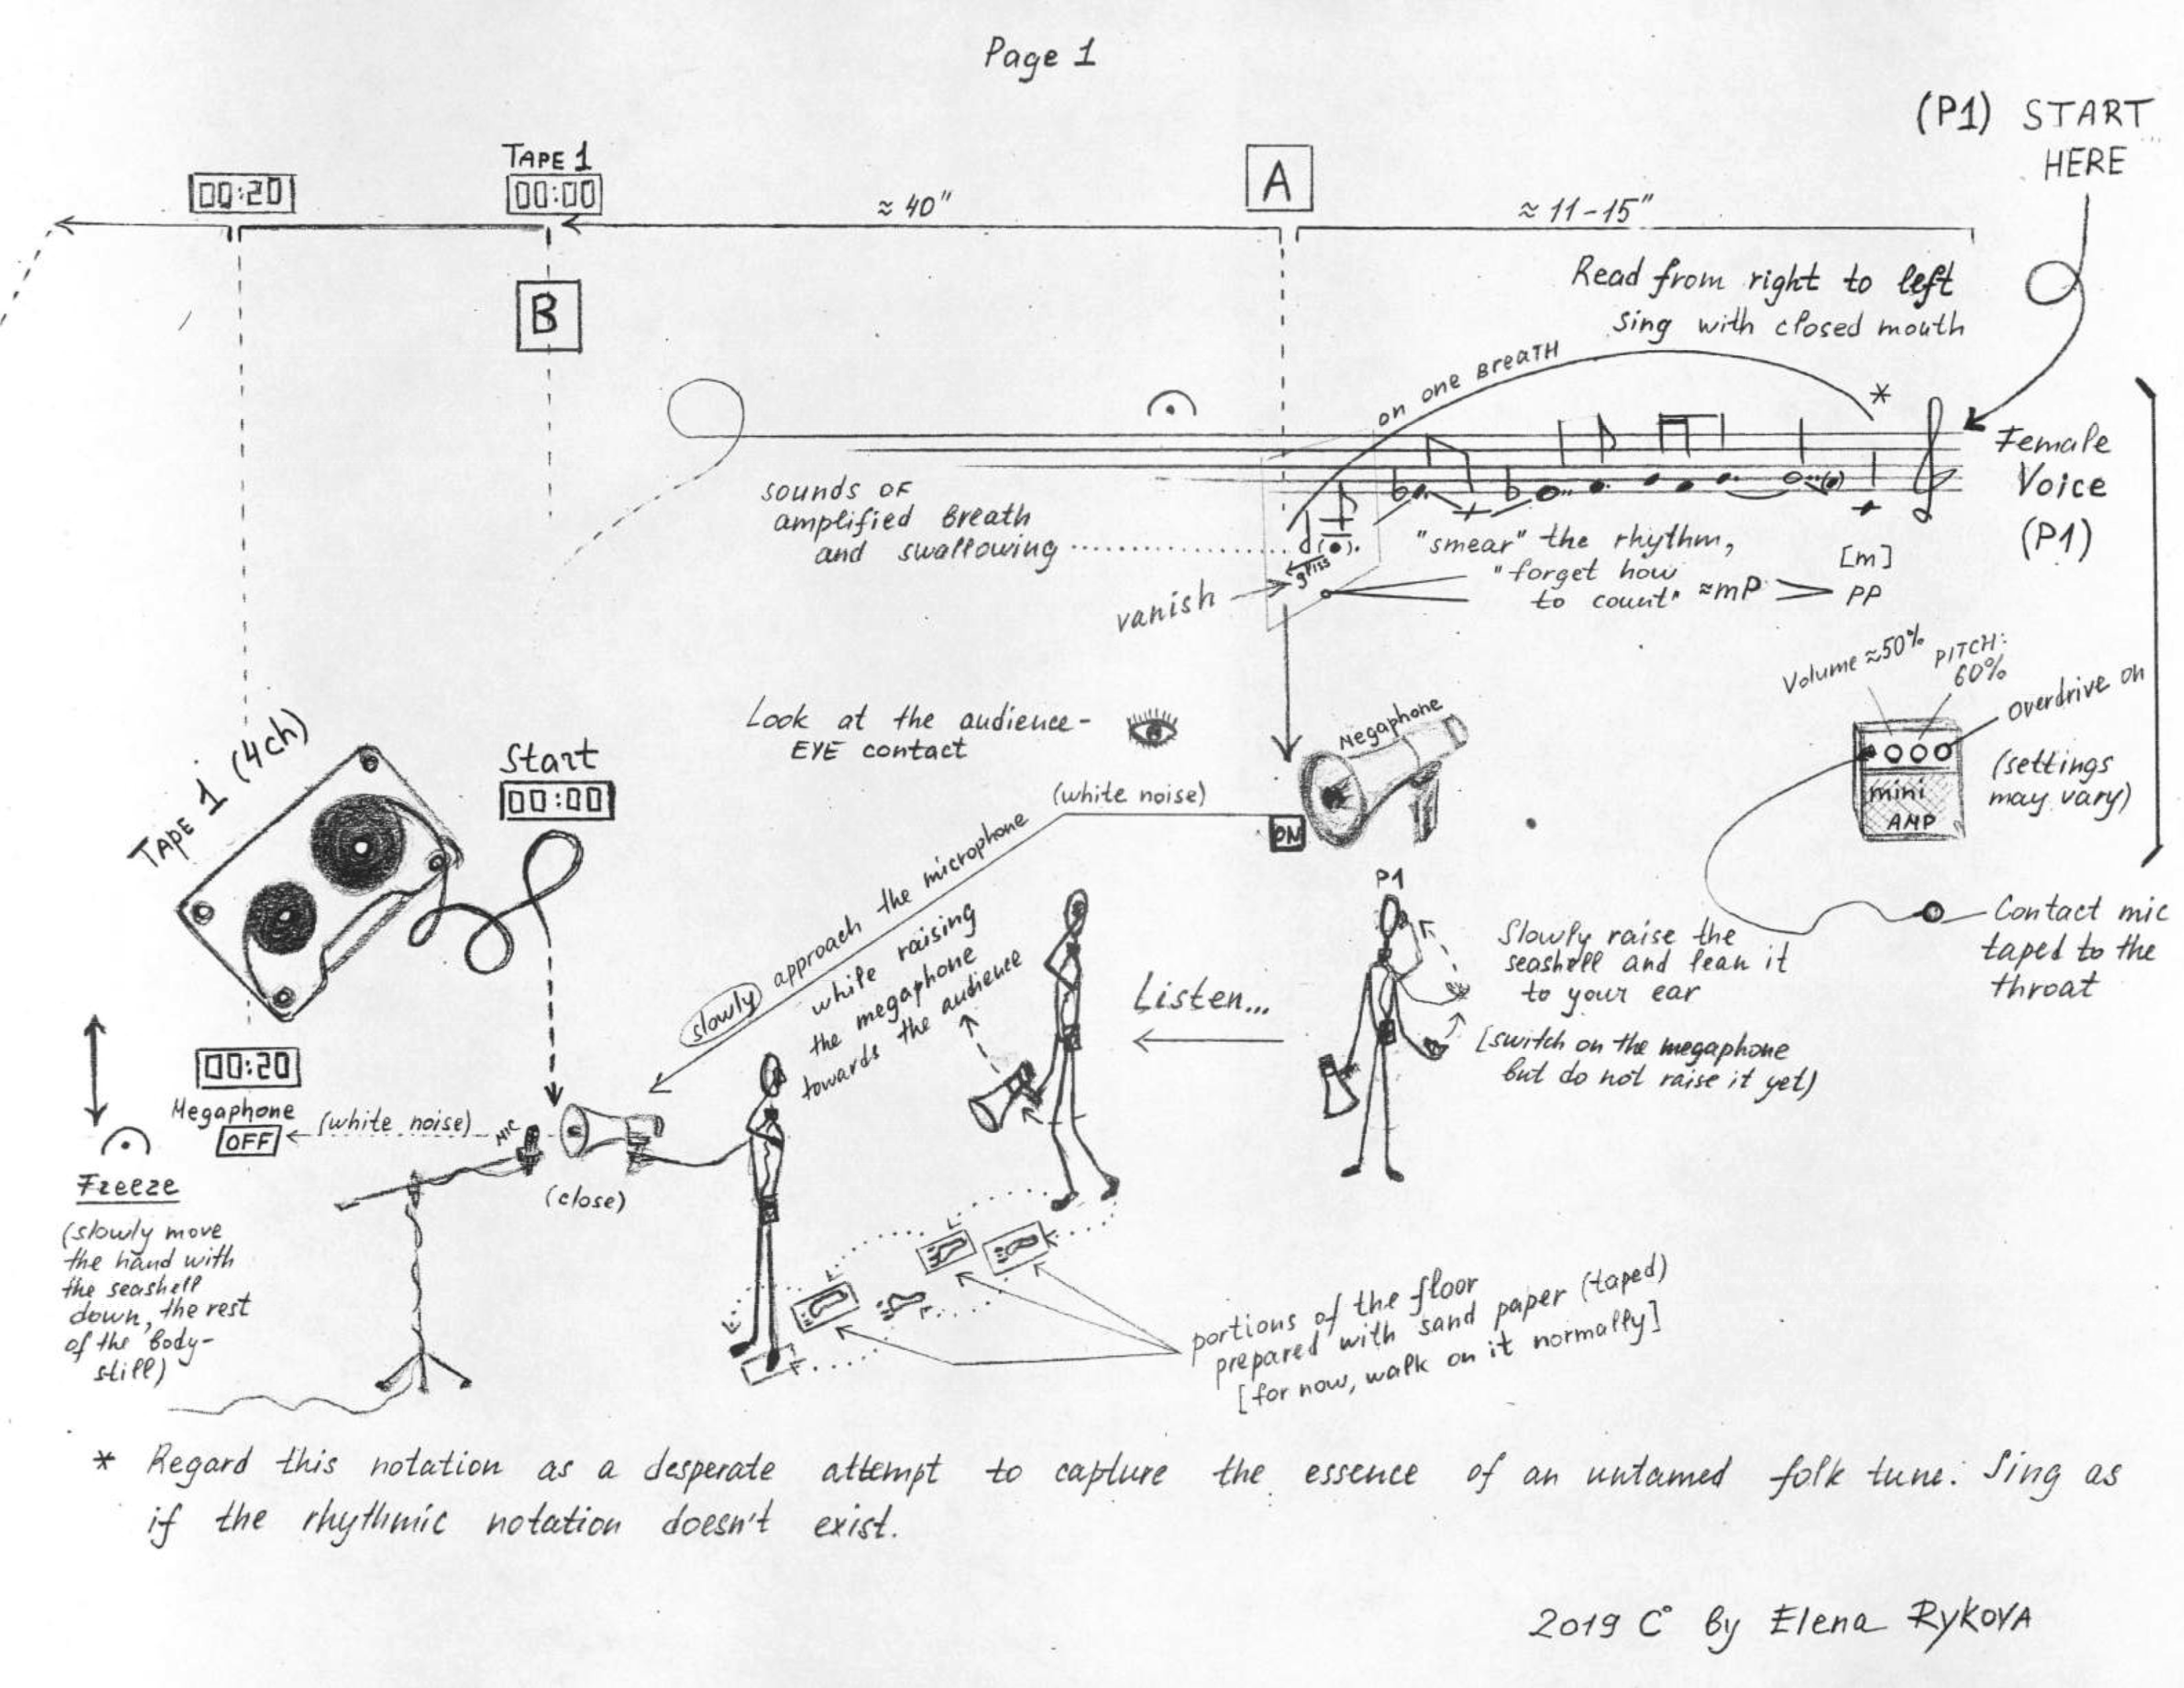 Page 1
(P1) START
HERE
TAPE 1
00:20
00:00
≈ 40"
A
≈ 11-15"
B
Read from right to left
Sing with closed mouth
on one BreaTH
*
Female
Voice
(P1)
sounds OF
amplified Breath
and swallowing
gliss
vanish
"smear" the rhythm,
"forget how
to count"
≈mP
[m]
PP
Volume ≈50%
PITCH:
60%
overdrive on
(settings
may vary)
mini
AMP
Contact mic
taped to the
throat
Look at the audience-
EYE contact
Megaphone
(white noise)
ON
TAPE 1 (4ch)
Start
00:00
slowly approach the microphone
while raising
the megaphone
towards the audience
Listen...
P1
Slowly raise the
seashell and lean it
to your ear
[switch on the megaphone
but do not raise it yet)
00:20
Megaphone
OFF
(white noise)
MIC
(close)
Freeze
(slowly move
the hand with
the seashell
down, the rest
of the Body-
still)
portions of the floor
prepared with sand paper (taped)
[for now, walk on it normally]
* Regard this notation as a desperate attempt to capture the essence of an untamed folk tune. Sing as
if the rhythmic notation doesn't exist.
2019 C° By Elena RYKOVA